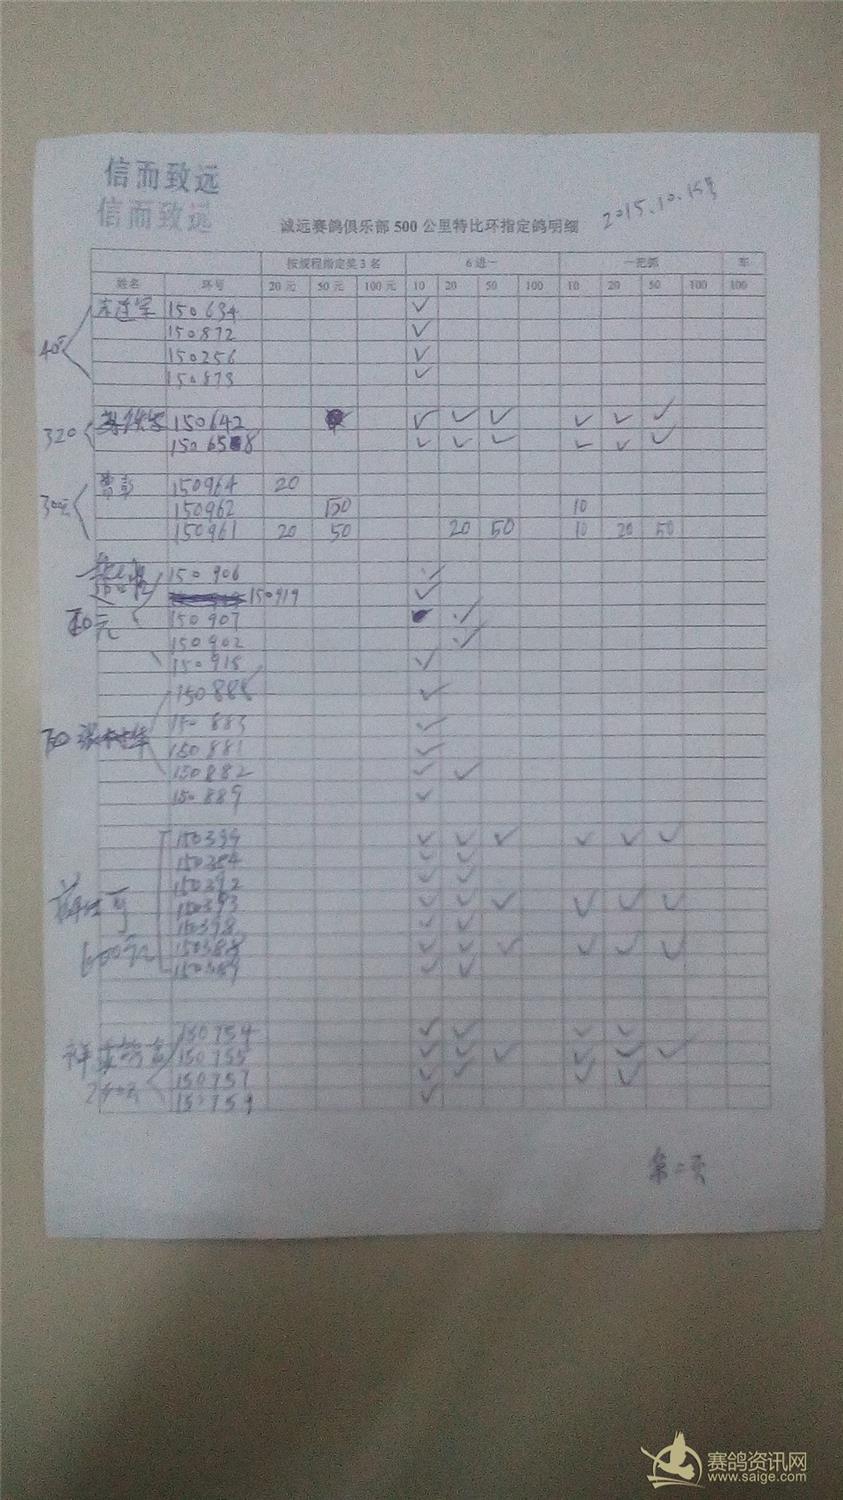 信而致远
信而致远
诚远赛鸽俱乐部500公里特比环指定鸽明细
2015.10.15号
按规程指定奖3名 6进一 一把抓 车
姓名 环号 20元 50元 100元 10 20 50 100 10 20 50 100 100
150634 ✓
150872 ✓
40元
150256 ✓
150873 ✓
150642 ✓ ✓ ✓ ✓ ✓ ✓
320
150658 ✓ ✓ ✓ ✓ ✓ ✓
150964 20
150962 50 10
150961 20 50 20 50 10 20 50
150906 ✓
150919 ✓
150907 ✓
150902 ✓
150915 ✓
150888 ✓
150883 ✓
70
150881 ✓
150882 ✓ ✓
150889 ✓
150399 ✓ ✓ ✓ ✓ ✓ ✓
150384 ✓ ✓
150392 ✓ ✓
150393 ✓ ✓ ✓ ✓ ✓ ✓
150398 ✓ ✓
150388 ✓ ✓ ✓ ✓ ✓ ✓
150389 ✓ ✓
150754 ✓ ✓ ✓ ✓
150755 ✓ ✓ ✓ ✓ ✓ ✓
150757 ✓ ✓ ✓ ✓
150759 ✓
第二页
赛鸽资讯网
www.saige.com